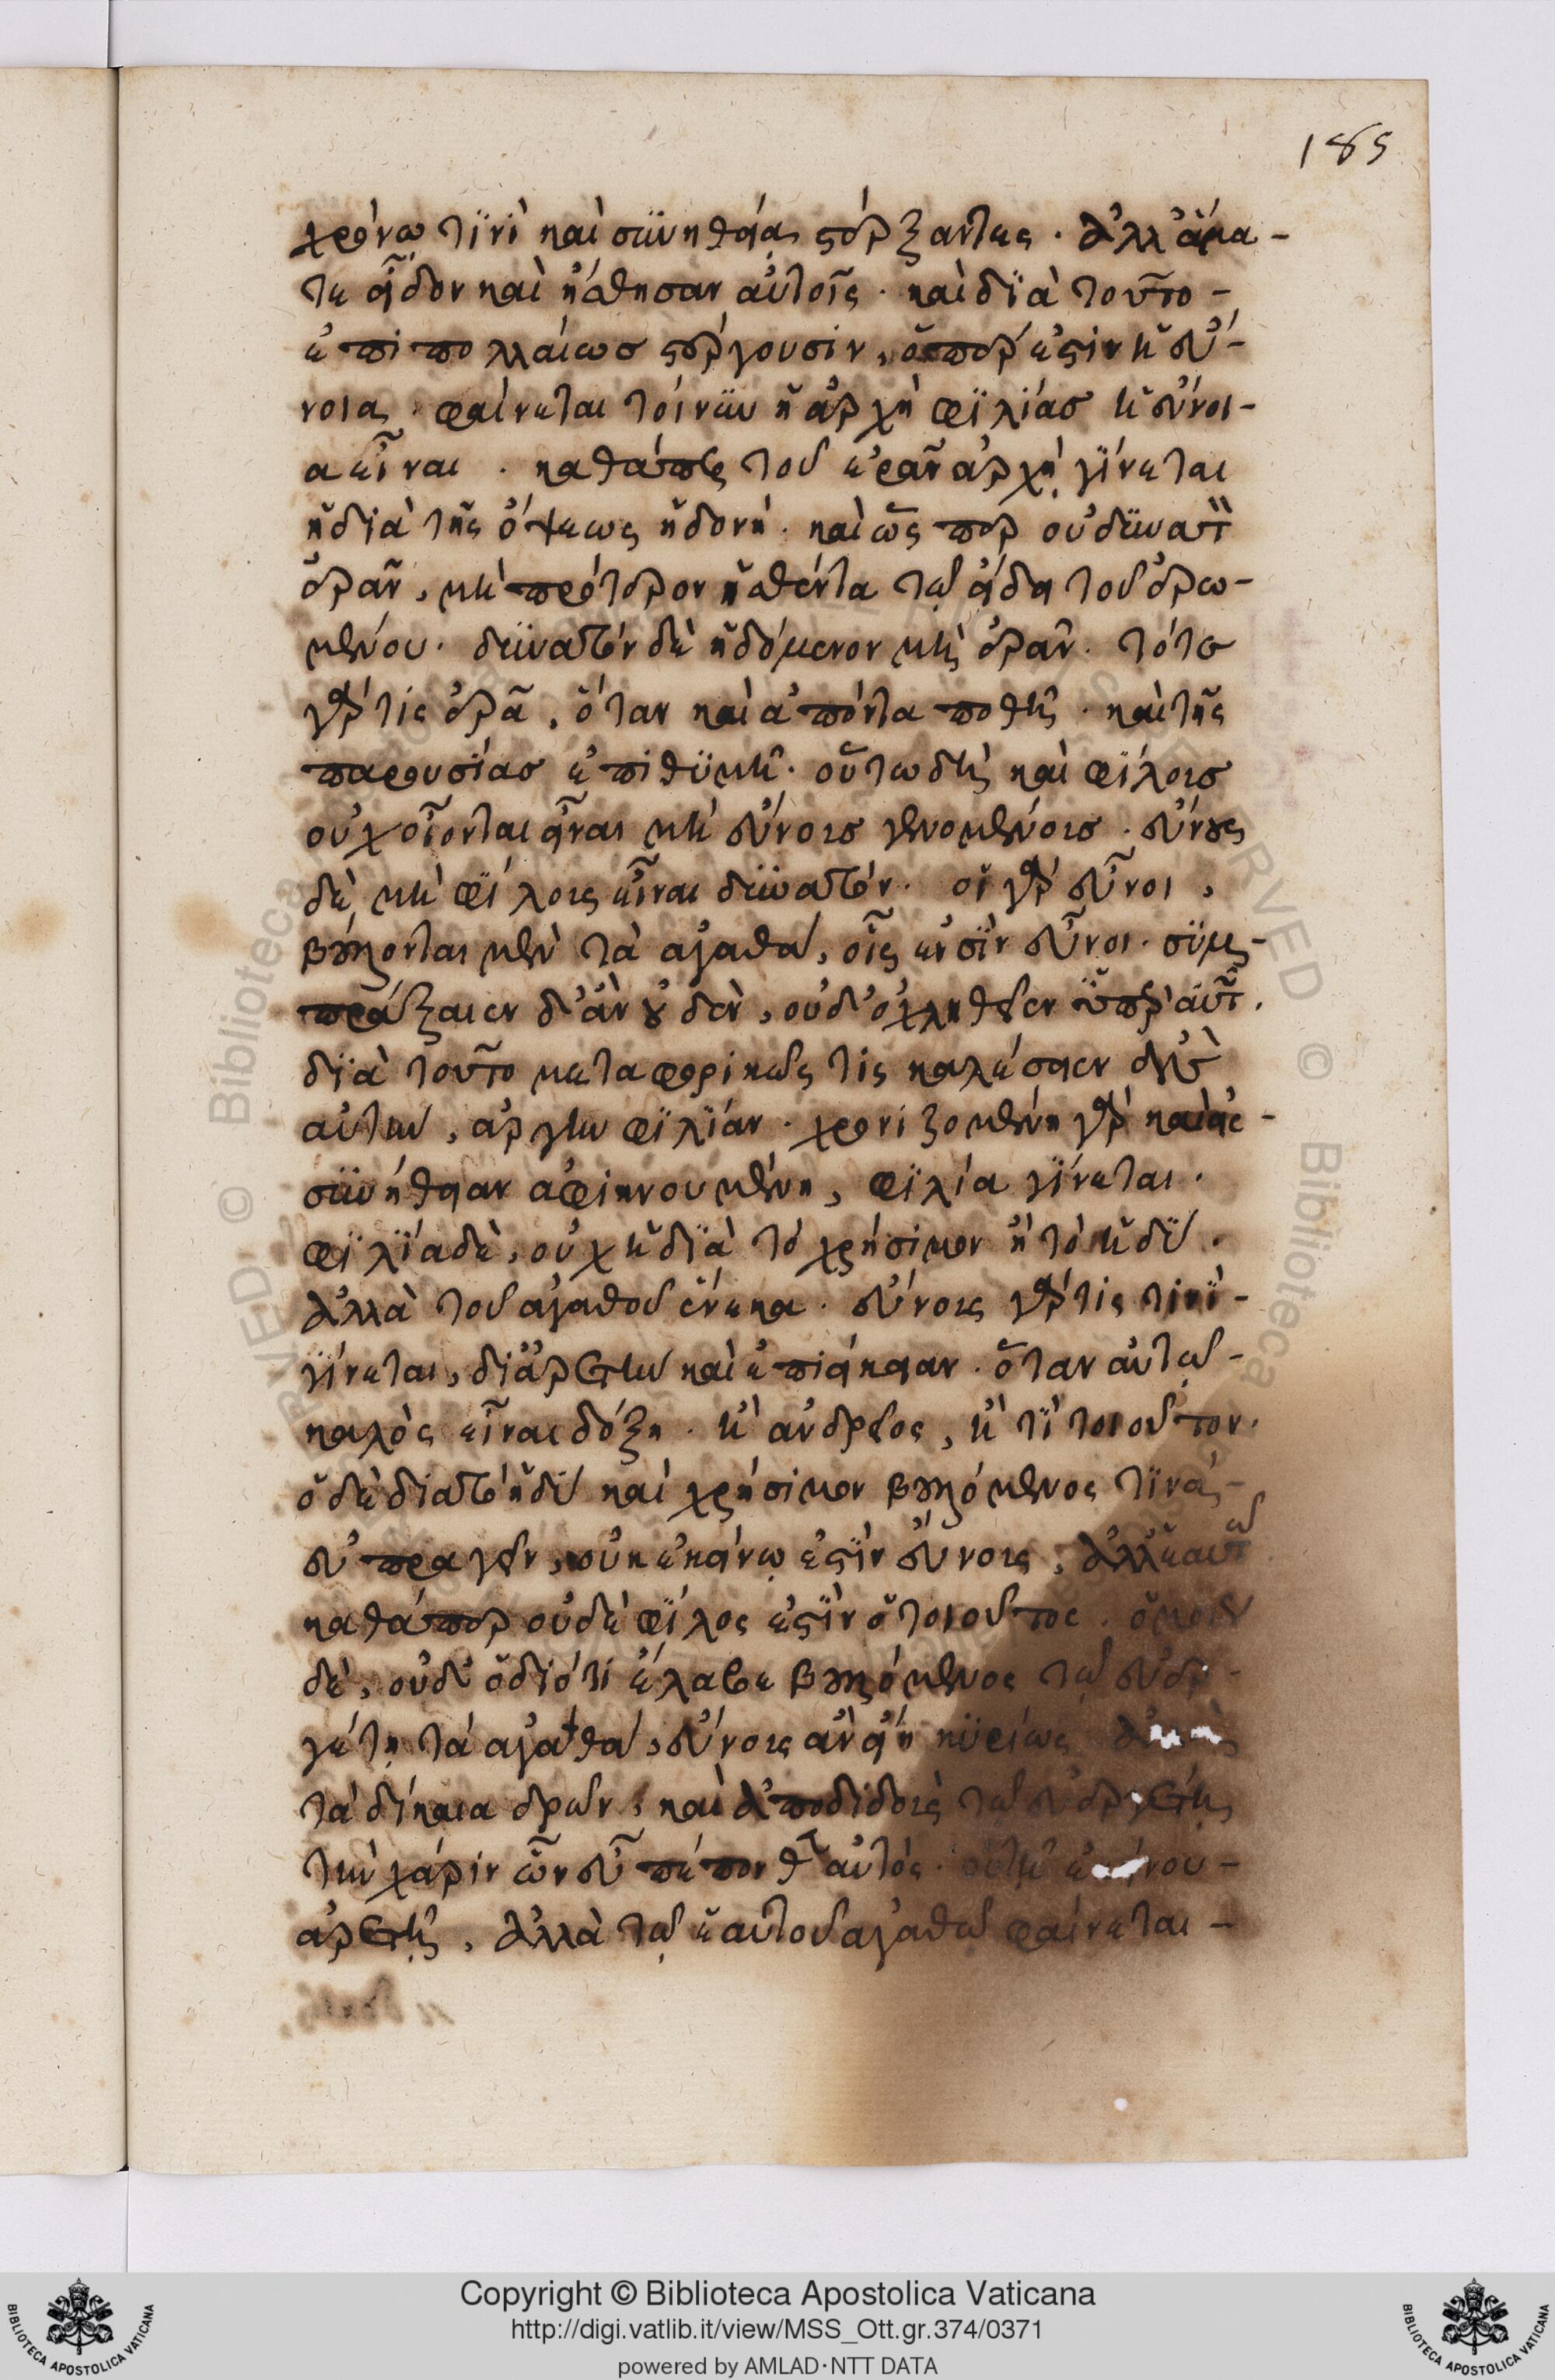 185
χρόνω τϊνὶ καὶ συνηθείας στέρξαντες . ἀλλ' ἅμα -
τε εἶδον καὶ ἥσθησαν αὐτοῖς . καὶ δϊὰ τοῦτο -
ἐπιπολλαίως στέργουσιν , ὅσπερ ἐστὶν ἡ εὔ-
νοια . φαίνεται τοίνυν ἡ ἀρχὴ φϊλίας ἡ εὔνοι-
α εἶναι . καθάπερ τοῦ ἐρᾶν ἀρχὴ γίνεται
ἡ διὰ τῆς ὄψεως ἡδονή . καὶ ὥσπερ οὐ δυνατὸν
ἐρᾶν , μὴ πρότερον ἡσθέντα τῷ εἴδει τοῦ ὁρω-
μένου . δυνατὸν δὲ ἡδόμενον μὴ ἐρᾶν . τότε
γάρ τις ἐρᾶ , ὅταν καὶ ἀπόντα ποθῆ . καὶ τῆς
παρουσίας ἐπιθϋμῆ . οὕτω δὴ καὶ φϊλοις
οὐχ οἷονται εἶναι μὴ εὔνοις γενομένοις . εὔνους
δὲ μὴ φίλοις εἶναι δυνατόν . οἱ γὰρ εὖνοι ,
βούλονται μὲν τὰ ἀγαθὰ , οἷς εἰσὶν εὖνοι . συμ-
πράξαιεν δ' ἂν οὐδὲν , οὐδ' ὀχληθεῖεν ὑπὲρ αὐτῶν .
δϊὰ τοῦτο μεταφορικῶς τὶς καλέσειεν εὔνοιαν
αὐτὴν , ἀργὴν φϊλϊάν . χρονιζομένη γὰρ καὶ εἰς -
συνήθειαν ἀφικνουμένη , φϊλία γϊνεται .
φϊλϊα δὲ , οὐχ ἡ δϊὰ τὸ χρήσιμον ἢ τὸ ἡδὺ .
ἀλλὰ τοῦ ἀγαθοῦ ἕνεκα . εὔνοις γάρ τις τινϊ -
γϊνεται , δϊ' ἀρετὴν καὶ ἐπιείκειαν . ὅταν αὐτῷ -
καλὸς εἶναι δόξη . ἢ ἀνδρεῖος , ἢ τϊ τοιοῦτον .
ὁ δὲ διὰ τὸ ἡδὺ καὶ χρήσιμον βουλόμενος τϊνὰ -
εὐπραγεῖν , οὐκ ἐκείνω ἐστϊν εὔνοις , ἀλλ' ἑαυτῶ
καθάπερ οὐδὲ φϊλος ἐστϊν ὁ τοιοῦτος .
δὲ , οὐδ' ὁ διότι ἔλαβε βουλόμενος τῷ εὐερ -
γέτη τὰ ἀγαθά , εὔνοις ἂν εἴη κυρίως
τὰ δίκαια δρῶν , καὶ ἀποδιδοὺς τῷ εὐεργέτη
τὴν χάριν ὧν εὖ πέπονθεν αὐτός . ἐκείνου -
ἀρετῆ , ἀλλὰ τῷ ἑαυτοῦ ἀγαθῷ φαίνεται -
Copyright © Biblioteca Apostolica Vaticana
http://digi.vatlib.it/view/MSS_Ott.gr.374/0371
powered by AMLAD·NTT DATA